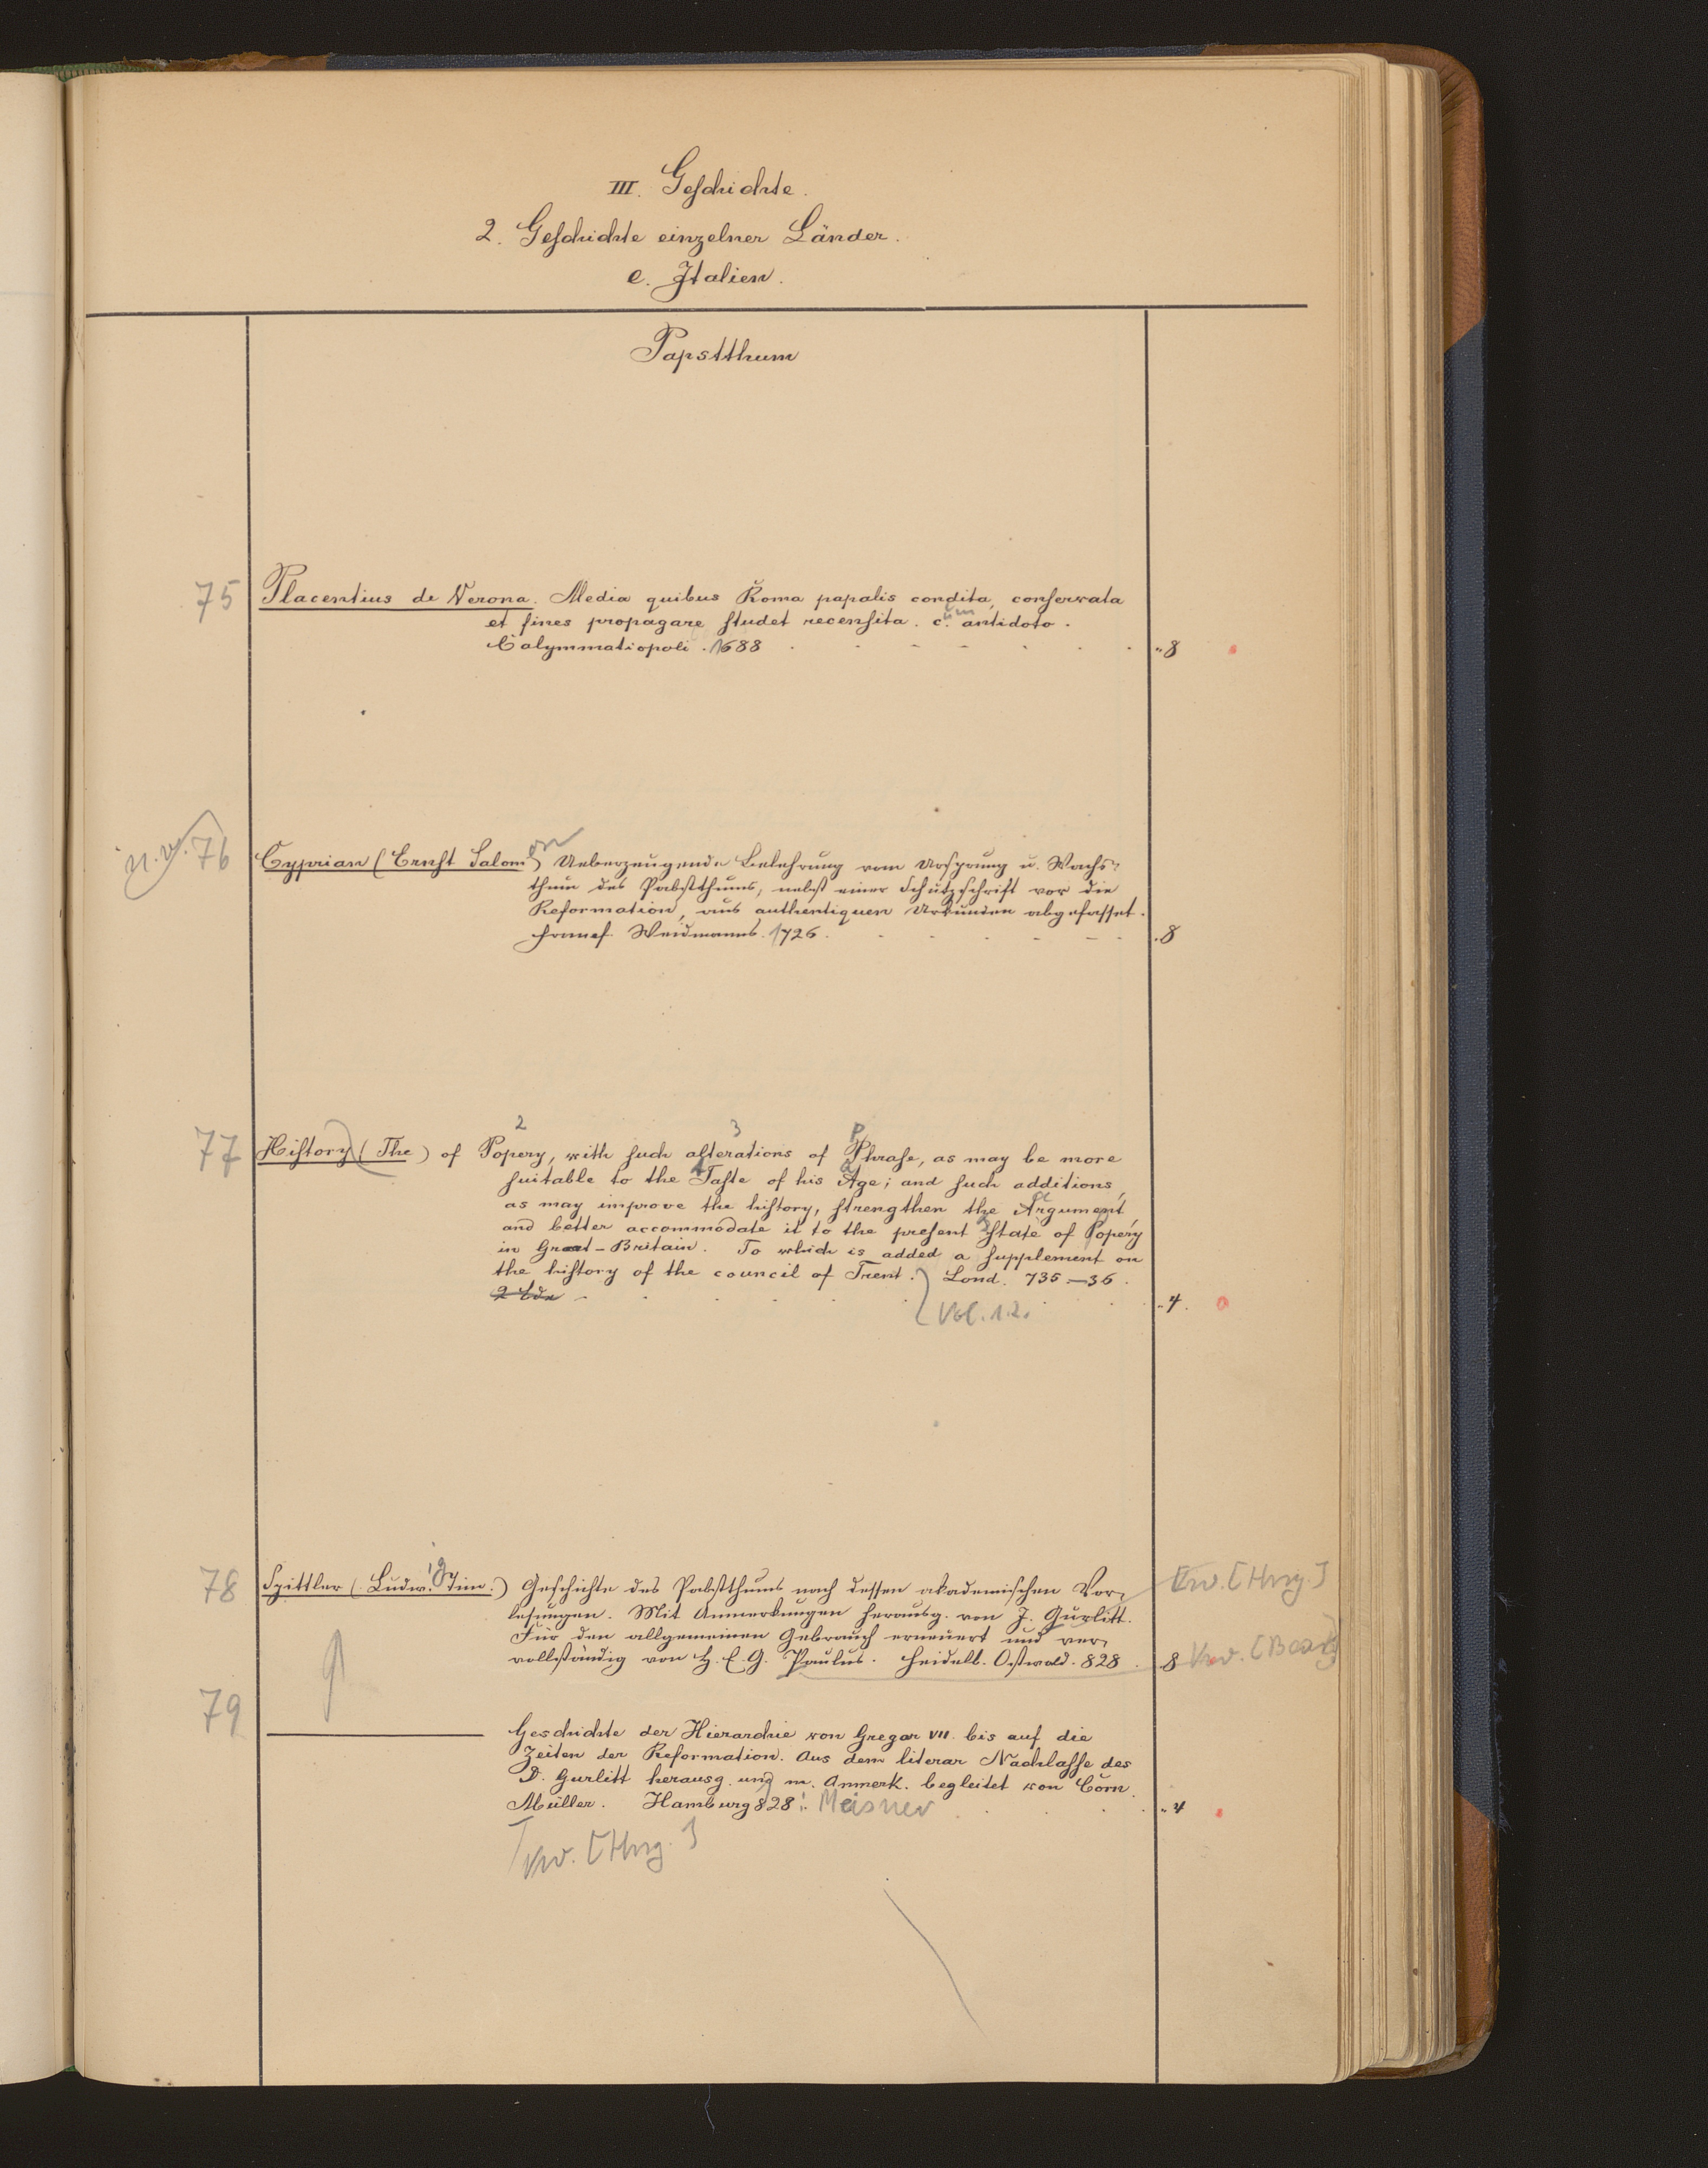 III. Geschichte.
2. Geschichte einzelner Länder.
e. Italien.
Papstthum
75 Placentius de Verona. Media quibus Roma papalis condita, conservata
et fines propagare studet recensita. c.um antidoto.
Calymmatiopoli. 1688 "8
n. v. 76 Cyprian (Ernst Salomon) Ueberzeugende Belehrung vom Ursprung u. Wachs-
thum des Pabstthums, nebst einer Schutzschrift vor die
Reformation, aus authentiquen Urkunden abgefasset.
Weidmanns. 1726. .8
77 History (The) of Popery, with such alterations of Phrase, as may be more
suitable to the Taste of his Age; and such additions,
as may improve the history, strengthen the Argument,
and better accommodate it to the present State of Popery
in Great-Britain. To which is added a supplement on
the history of the council of Trent. Lond. 735–36.
2 Bde "4.
Vol. 1.2.
78 Spittler (Ludw.ig Tim.) Geschichte des Pabstthums nach dessen akademischen Vor-
Vw. [Hrsg.]
lesungen. Mit Anmerkungen herausg. von J. Gurlitt.
Für den allgemeinen Gebrauch erneuert und ver-
vollständig von H. E. G. Paulus. Heidelb. Oswald. 828. 8 Vw. [Bearb]
79 ——— Geschichte der Hierarchie von Gregor VII. bis auf die
Zeiten der Reformation. Aus dem literar Nachlasse des
D. Gurlitt herausg. und m. Anmerk. begleitet von Corn.
Müller. Hamburg 828. Meisner "4
Vw. [Hrsg.]